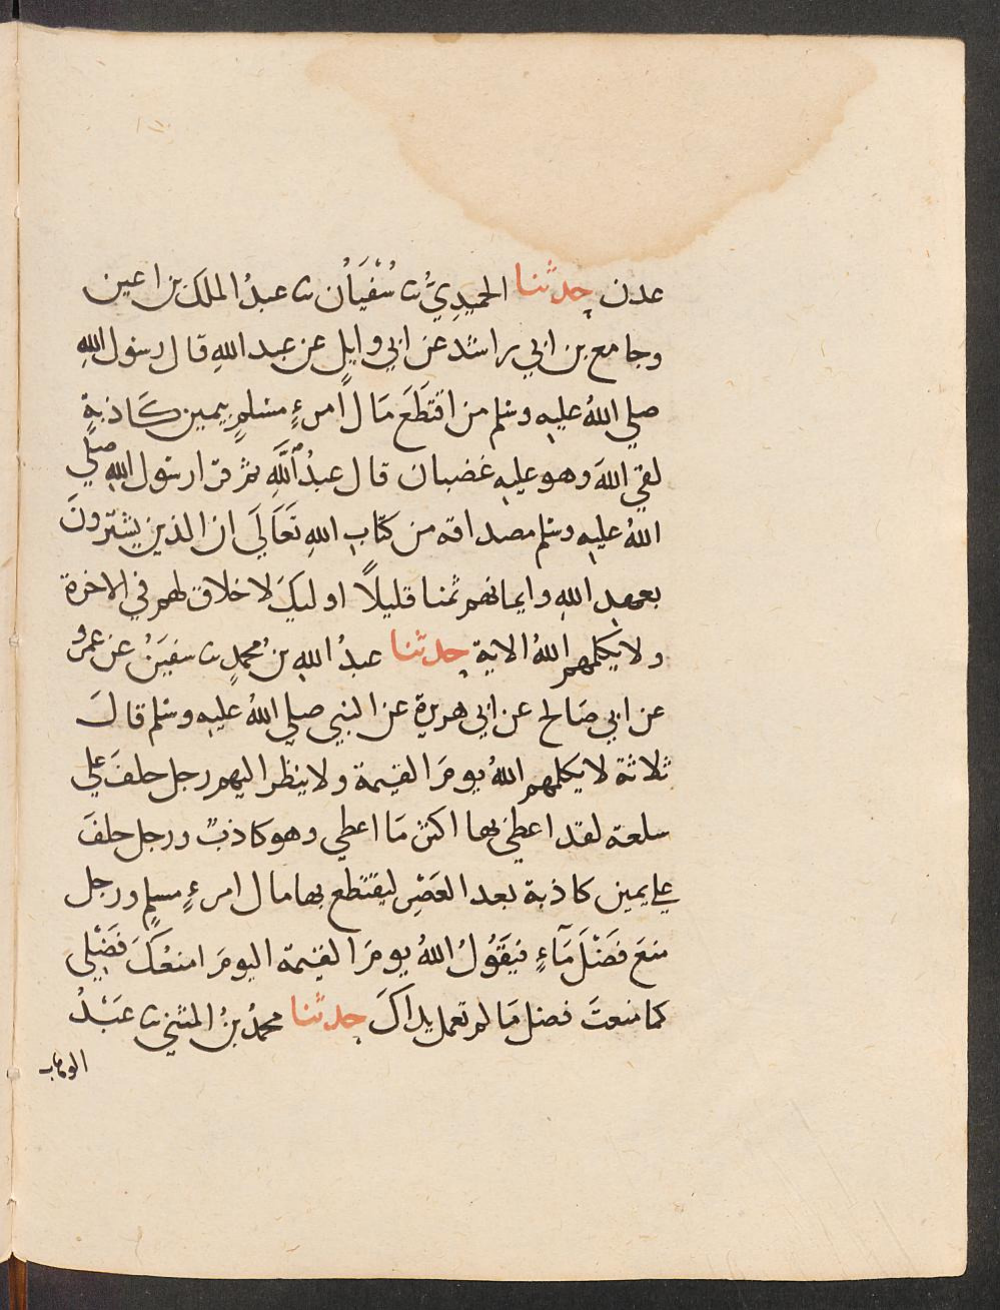 عدن حدثنا الحميديُّ ثنا سُفْيَانُ ثنا عبدُ الملك بن اعين
وجامع بن ابي راشد عن ابي وايلٍ عن عبد اللهِ قال رسول اللهِ
صلي اللهُ عليه وسلم من اقتَطَعَ مَال امرءٍ مسْلمٍ بيمين كَاذبةٍ
لقي اللهَ وهو عليه غضبان قال عبدُ اللَّهِ ثم قرا رسول اللهِ صلي
اللهُ عليه وسلم مصداقه من كتابِ اللهِ تَعَالَي ان الذين يشترونَ
بعهد اللهِ وايمانهم ثمنا قليلاً اوليكَ لاخلاق لهم في الاخرة
ولا يكلمهم اللهُ الاية حدثنا عبدُ اللهِ بنُ محمدٍ ثنا سفيَنُ عن عمرٍو
عن ابي صَالح عن ابي هريرة عن النبي صلي اللهُ عليه وسلم قالَ
ثلاثة لا يكلمهم اللهُ يومَ القيمة ولا ينظر اليهم رجل حلفَ علي
سلعة لقد اعطي بها اكثر مَا اعطي وهو كاذبٌ ورجل حلفَ
علي يمين كاذبة بعد العَصْرِ ليقتطع بها مال امرءٍ مسلمٍ ورجل
منعَ فَضْلَ مَآءٍ فيَقُولُ اللهُ يومَ القيمة اليومَ امنعُكَ فَضْلِي
كما منعتَ فضل مَا لم تعمل يداكَ حدثنا محمدُ بنُ المثني ثنا عَبْدُ
الوهاب